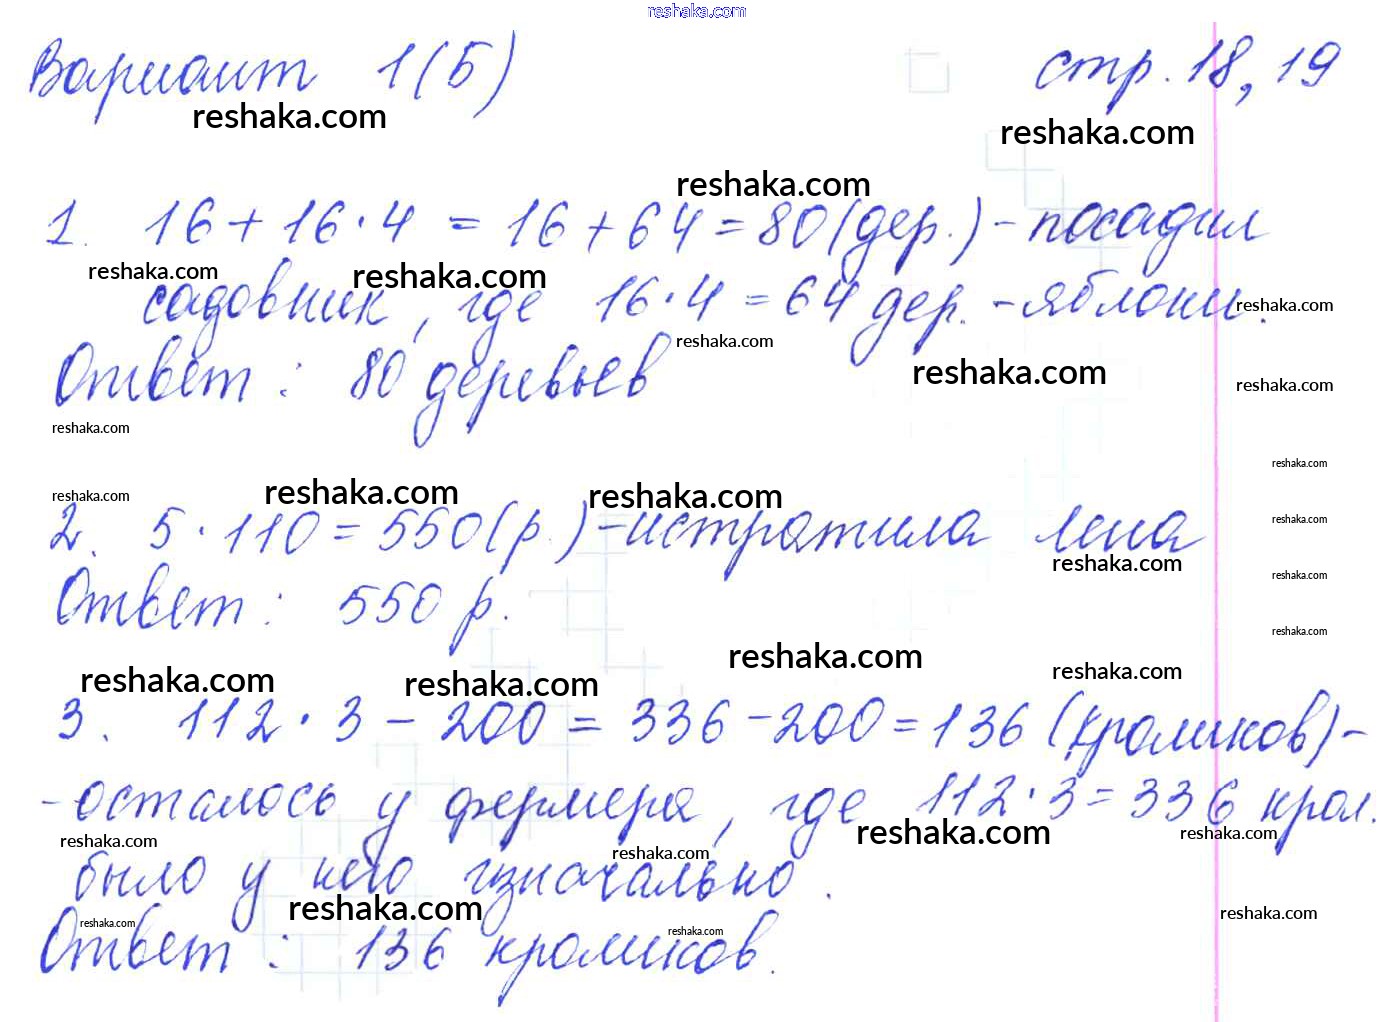 reshaka.com
Вариант 1(Б) стр. 18, 19
reshaka.com reshaka.com
reshaka.com
1. 16 + 16 · 4 = 16 + 64 = 80 (дер.) - посадил
reshaka.com reshaka.com
садовник, где 16 · 4 = 64 дер. - яблони.
reshaka.com
reshaka.com
Ответ : 80 деревьев
reshaka.com reshaka.com
reshaka.com
reshaka.com
reshaka.com reshaka.com reshaka.com
2. 5 · 110 = 550 (р.) - истратила Лена
reshaka.com
reshaka.com
reshaka.com
Ответ : 550 р.
reshaka.com
reshaka.com reshaka.com
reshaka.com reshaka.com
3. 112 · 3 - 200 = 336 - 200 = 136 (кроликов) -
- осталось у фермера, где 112 · 3 = 336 крол.
reshaka.com reshaka.com reshaka.com
reshaka.com
было у него изначально.
reshaka.com reshaka.com
reshaka.com reshaka.com
Ответ : 136 кроликов.